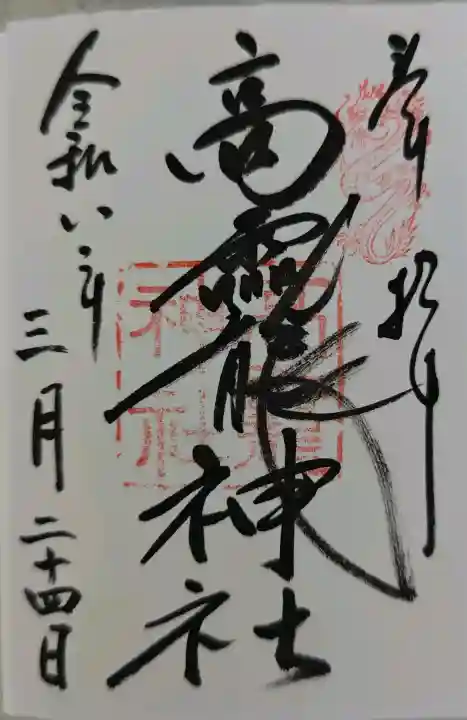 奉拝
高龗神社
令和六年三月二十四日